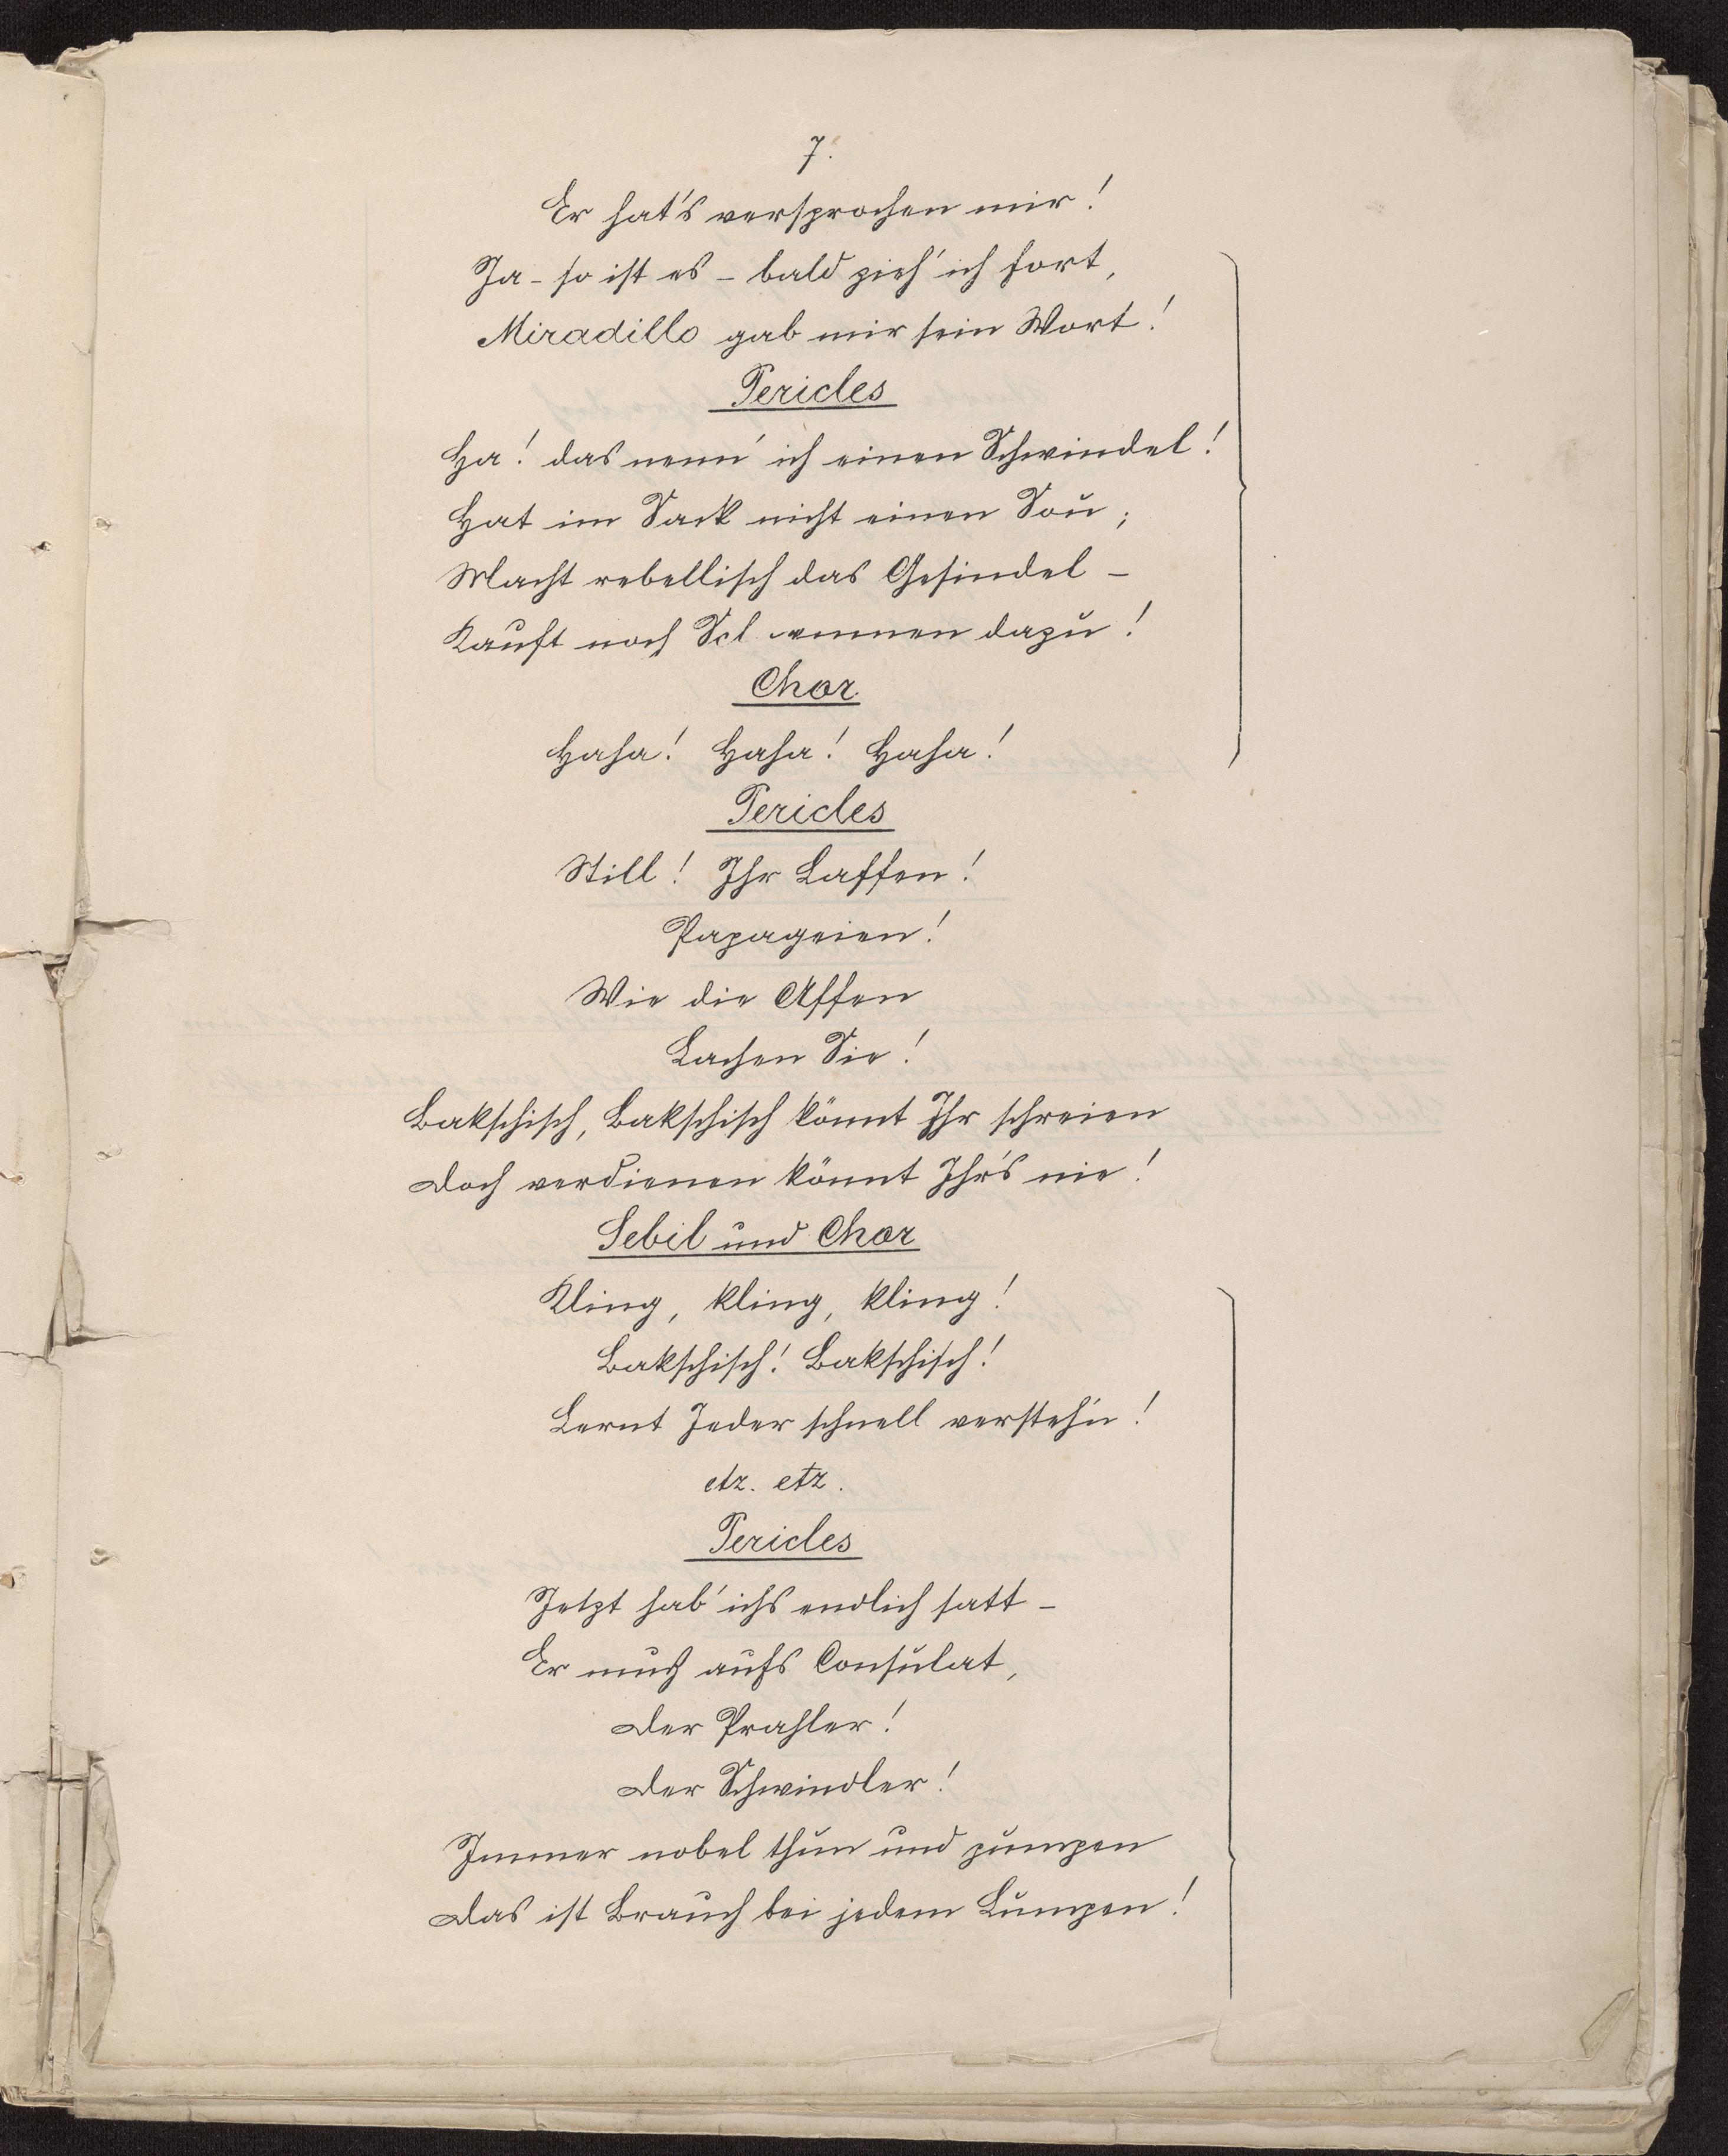 7.
Er hat's versprochen mir!
Ja - so ist es - bald zieh' ich fort,
Miradillo gab mir sein Wort!
Pericles
Ha! das nenn' ich einen Schwindel!
Hat im Sack nicht einen Sou;
Macht rebellisch das Gesindel -
Kauft noch dazu!
Chor
Haha! Haha! Haha!
Pericles
Still! Ihr Laffen!
Papageien!
Wie die Affen
Lachen Sie!
Bakschisch, Bakschisch könnt Ihr schreien
Doch verdienen könnt Ihr's nie!
Sebil und Chor
Kling, kling, kling!
Bakschisch! Bakschisch!
Lernt Jeder schnell versteh'n!
etz. etz.
Pericles
Jetzt hab' ichs endlich satt -
Er muß aufs Consulat,
Der Prahler!
Der Schwindler!
Immer nobel thun und pumpen
Das ist Brauch bei jedem Lumpen!